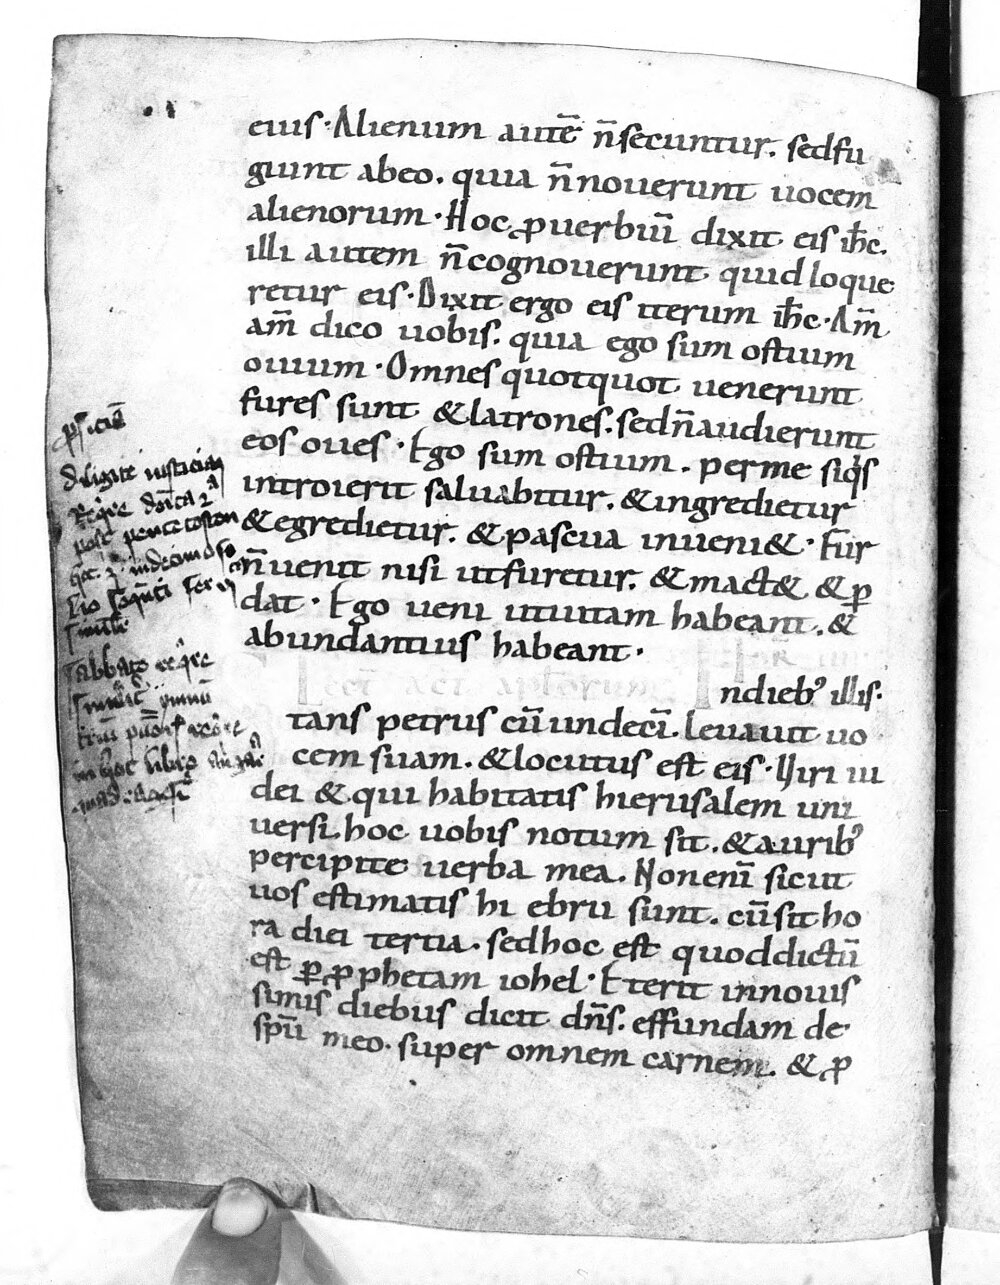 eius. Alienum autē n̄ secuntur. sed fu
giunt ab eo. quia n̄ nouerunt uocem
alienorum. Hoc ꝓuerbiū dixit eis ih̄c.
illi autem n̄ cognouerunt quid loque
retur eis. Dixit ergo eis iterum ih̄c. Am̄
am̄ dico uobis. quia ego sum ostium
ouium. Omnes quotquot uenerunt
fures sunt & latrones. sed n̄ audierunt
eos oues. Ego sum ostium. per me siq̇s
introierit saluabitur. & ingredietur
& egredietur. & pascua inueni&. Fur
n̄ uenit nisi ut furetur. & mact& & ꝑ
dat. Ego ueni ut uitam habeant. &
abundantius habeant.
Lect̄ act̄ aplōrum
In dieb' illis.
tans petrus cū undecī. leuauit uo
cem suam. & locutus est eis. Uiri iu
dei & qui habitatis hierusalem uni
uersi. hoc uobis notum sit. & aurib'
percipite uerba mea. Non enī sicut
uos estimatis hi ebrii sunt. cū sit ho
ra diei tertia. sed hoc est quod dictū
est ꝑ ꝓphetam iohel. Et erit in nouis
simis diebus dicit dn̄s. effundam de
sp̄u meo. super omnem carnem. & ꝓ
diligite iusticiam
post pentecosten
simile
sabbato
in hoc libro